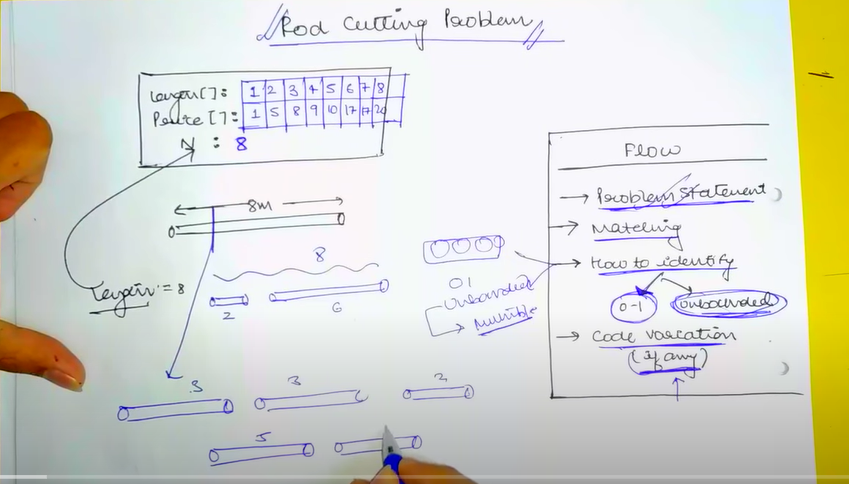 Rod Cutting Problem
Length[]: 1 2 3 4 5 6 7 8
Price[]: 1 5 8 9 10 17 17 20
N : 8
8m
Length = 8
8
2
6
01
Unbounded
→ Multiple
3
3
2
5
Flow
→ Problem Statement
→ Matching
→ How to identify
0-1
Unbounded
→ Code variation
(if any)